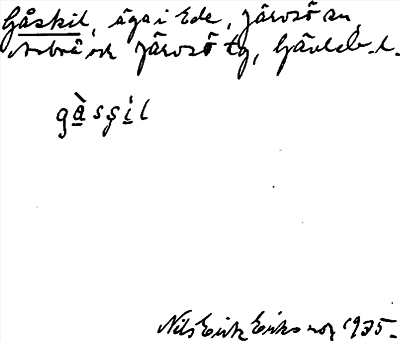 Gåskil, äga i Ede, Järvsö sn,
Arbrå och Järvsö tg, Gävleb. l.
gàsgil
Nils Erik Eriksson 1935.